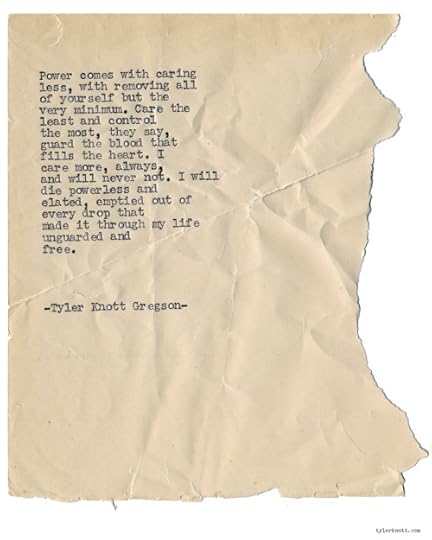 Power comes with caring
less, with removing all
of yourself but the
very minimum. Care the
least and control
the most, they say,
guard the blood that
fills the heart. I
care more, always,
and will never not. I will
die powerless and
elated, emptied out of
every drop that
made it through my life
unguarded and
free.
-Tyler Knott Gregson-
tylerknott.com